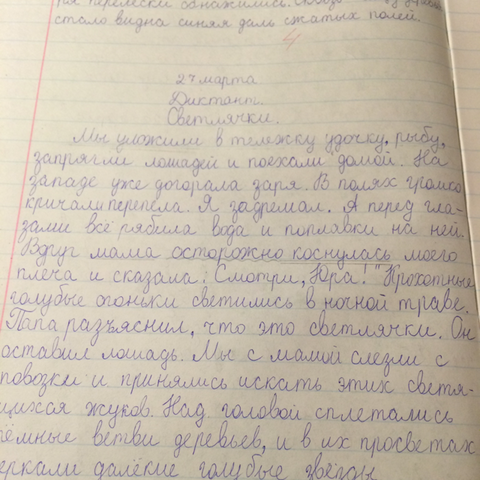 ря перелески обнажились. Сквозь
стало видна синяя даль сжатых полей.
4
27 марта
Диктант.
Светлячки.
Мы уложили в тележку удочку, рыбу,
запрягли лошадей и поехали домой. На
западе уже догорала заря. В полях громко
кричали перепела. Я задремал. А перед гла-
зами всё рябила вода и поплавки на ней.
Вдруг мама осторожно коснулась моего
плеча и сказала: Смотри, Юра!" Крохотные
голубые огоньки светились в ночной траве.
Папа разъяснил, что это светлячки. Он
оставил лошадь. Мы с мамой слезли с
повозки и принялись искать этих светя-
щихся жуков. Над головой сплетались
тёмные ветви деревьев, и в их просветах
еркали далёкие голубые звёзды